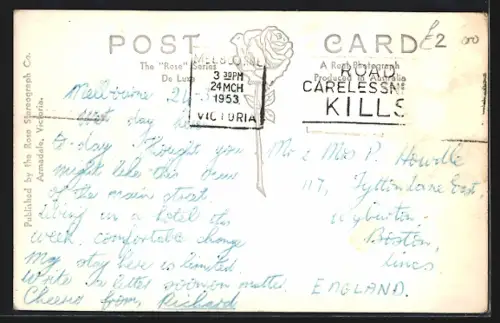 POST CARD
£2.00
The "Rose" Series
De Luxe
A Real Photograph
Produced in Australia
Published by the Rose Stereograph Co.
Armadale, Victoria.
MELBOURNE
3 30PM
24 MCH
1953
VICTORIA
ROAD
CARELESSNE
KILLS
Melbourne 24
day here
to-day. Thought you
might like this view
of the main street.
living in a hotel this
week. comfortable change
My stay here is limited.
Write in letter matter.
Cheerio from Richard
Mr & Mrs P. Howlle
117, Tytton Lane East,
Wyberton
Boston,
Lincs
ENGLAND.